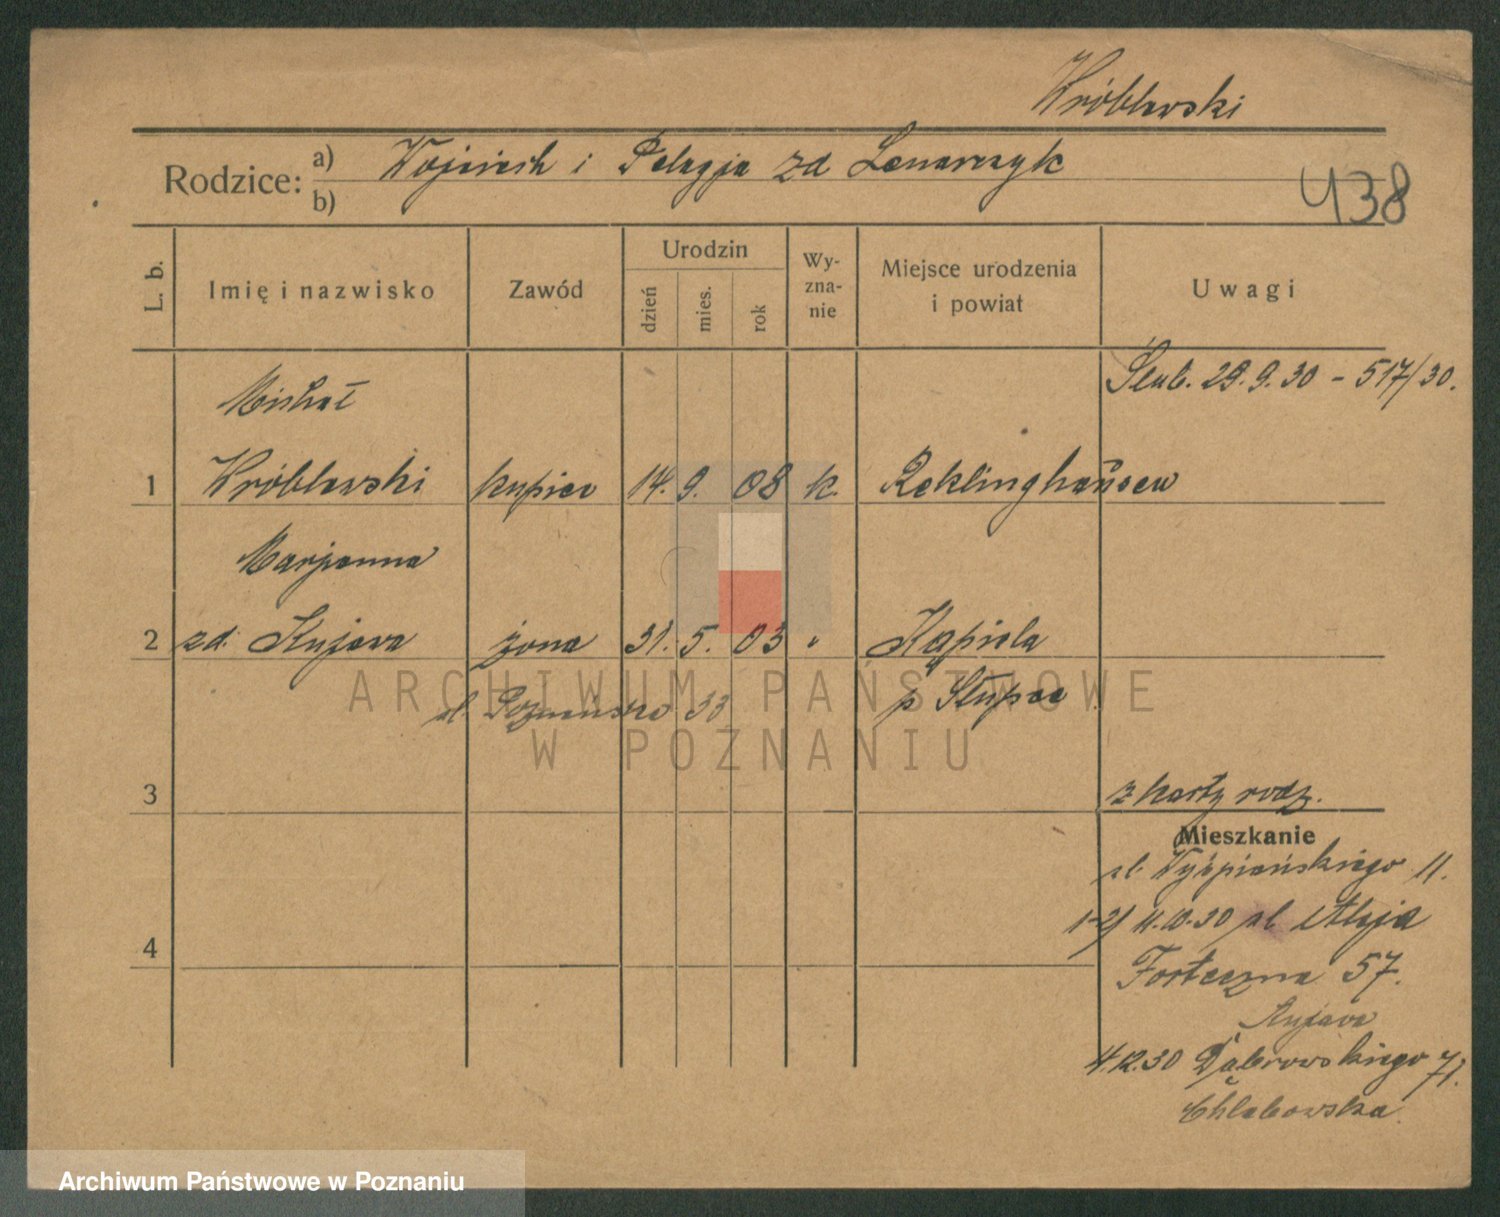 Wróblewski
Rodzice: a) Wojciech i Pelagja zd Lenarczyk
b)
438
L. b.
Imię i nazwisko
Zawód
Urodzin
dzień
mies.
rok
Wy-
zna-
nie
Miejsce urodzenia
i powiat
Uwagi
Ślub. 29.9.30 - 517/30.
Michał
1 Wróblewski kupiec 14. 9. 08 k. Reklinghausen
Marjanna
2 zd. Kujawa żona 31. 5. 03 " Kąpiela
p Słupca
ul. Poznańska 33
3
z karty rodz.
Mieszkanie
ul. Wyśpiańskiego 11.
1-2/ 11.10.30 ul Aleja
4
Forteczna 57.
Kujawa
4.12.30 Dąbrowskiego 71.
Chlebowska
ARCHIWUM PAŃSTWOWE
W POZNANIU
Archiwum Państwowe w Poznaniu